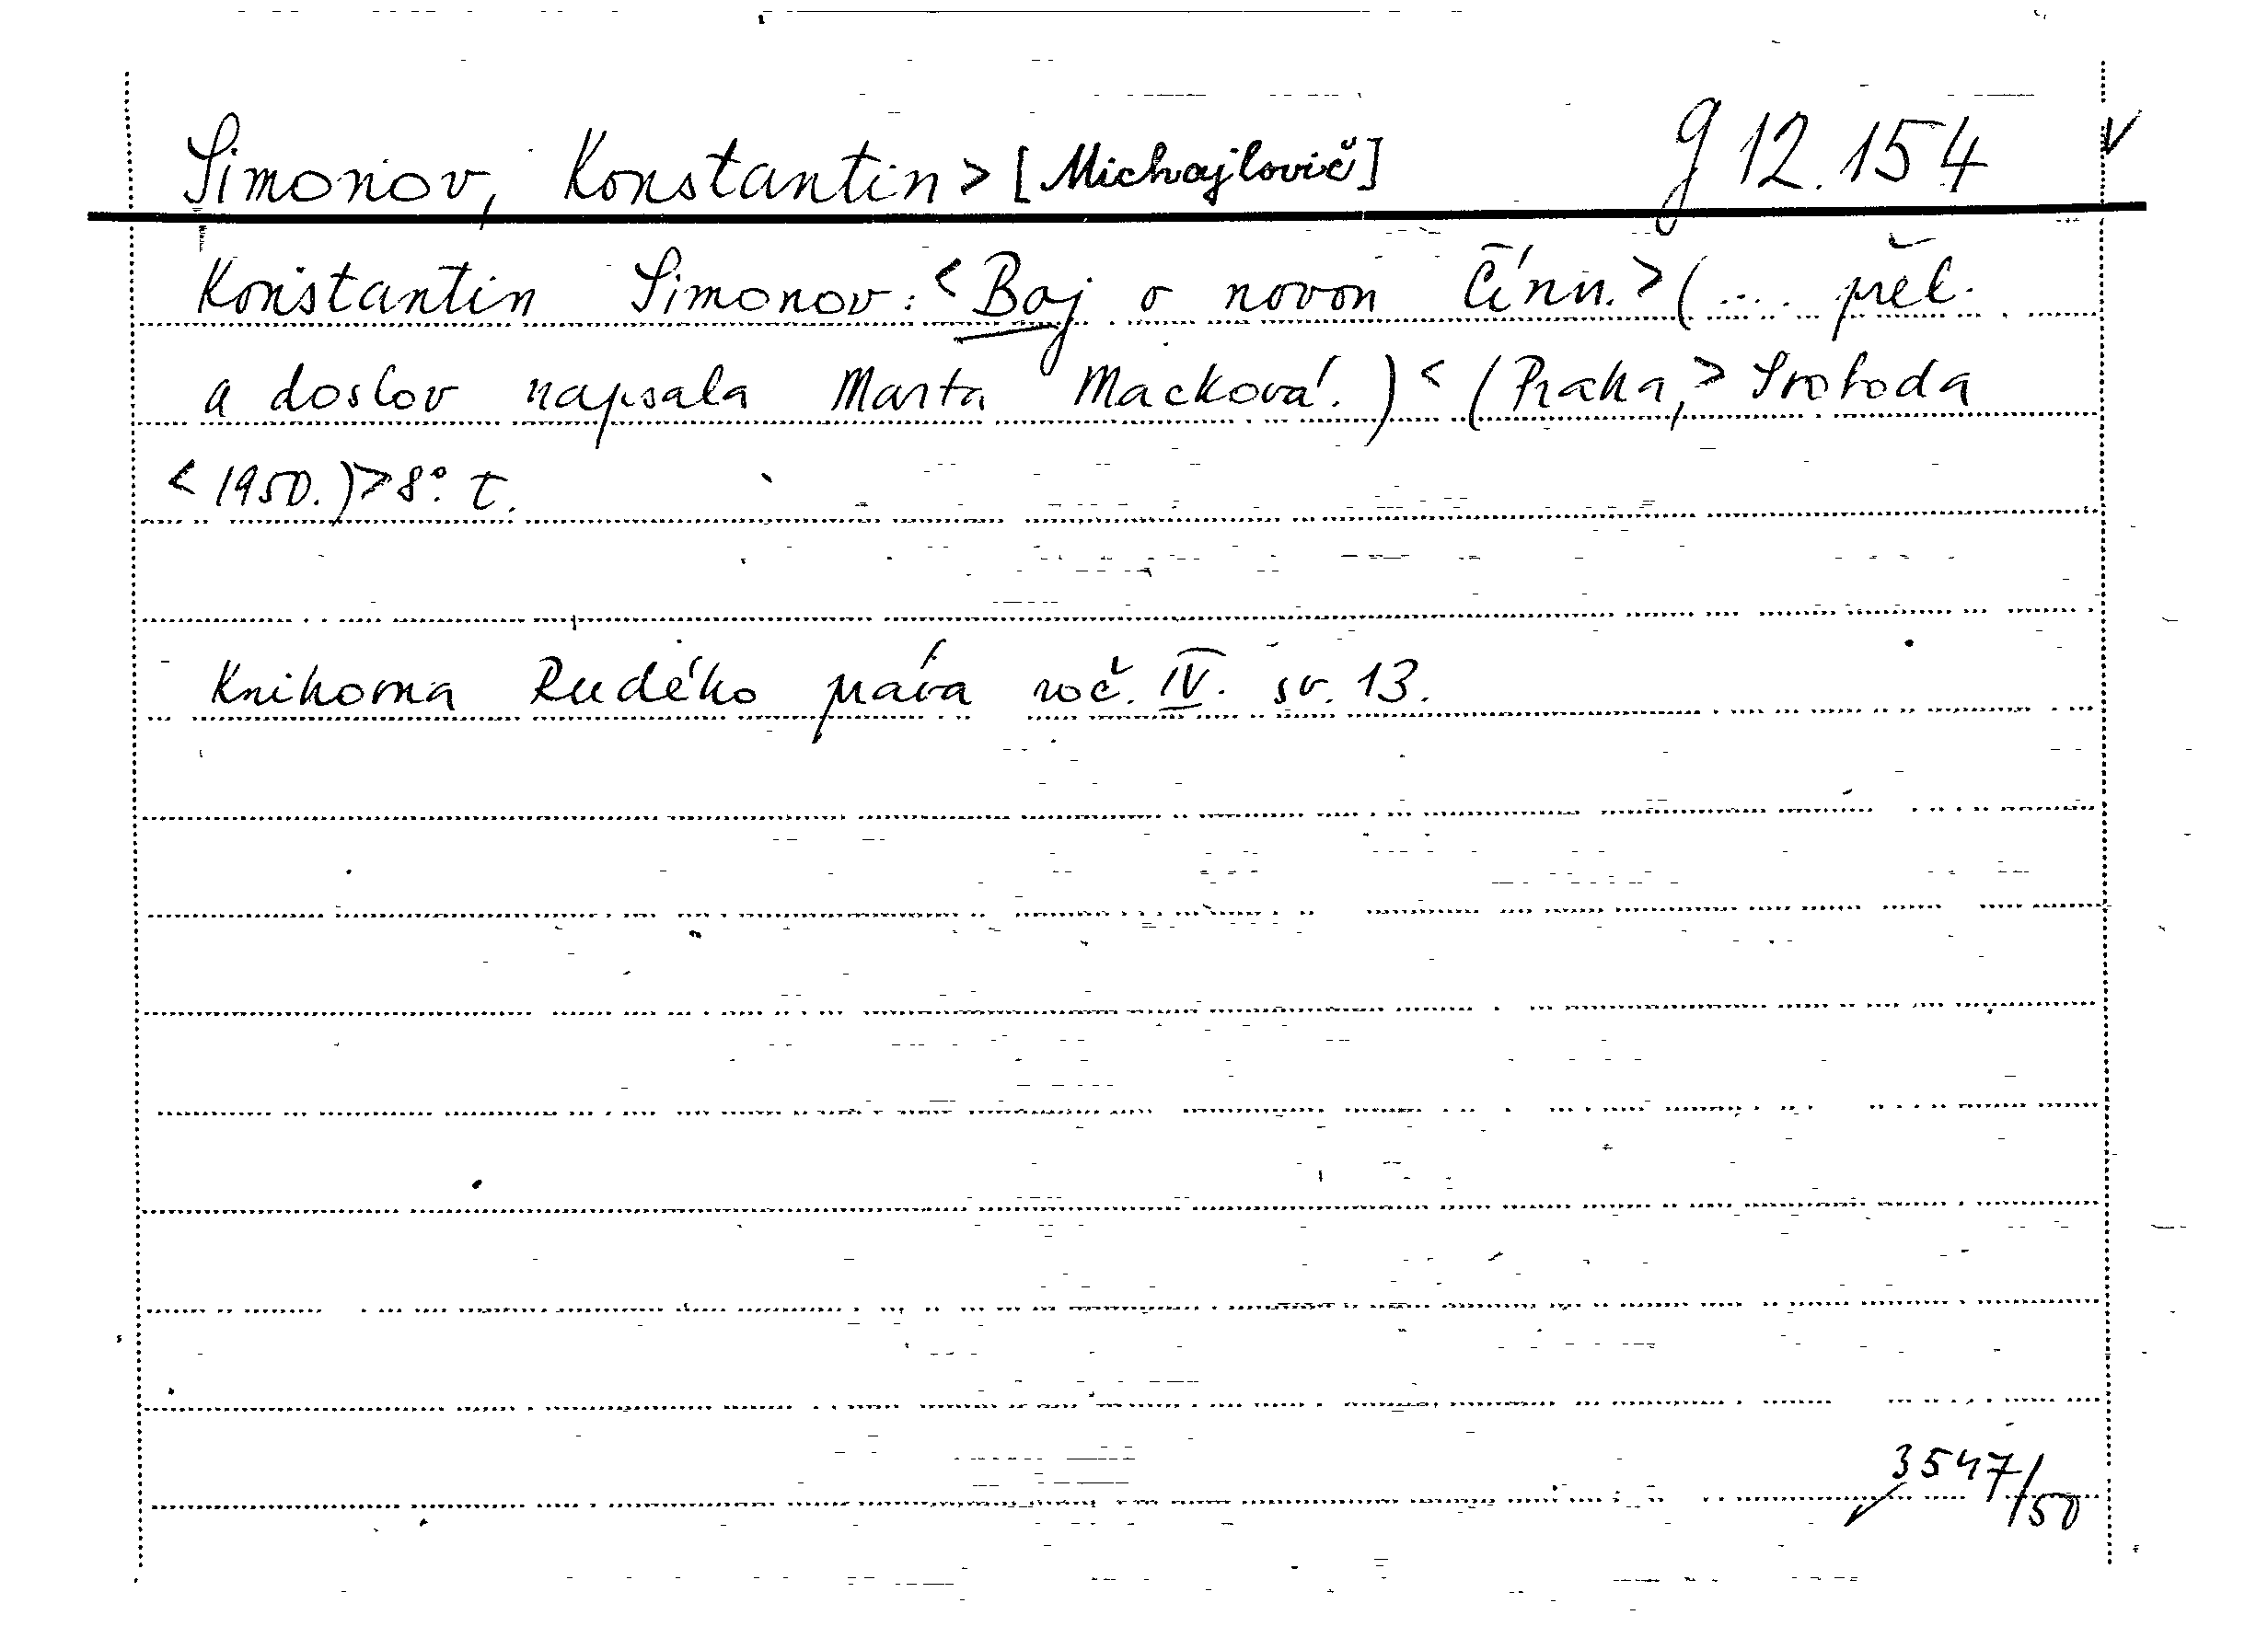 Simonov, Konstantin> [Michajlovič] g 12.154 v
Konstantin Simonov: <Boj o novou Čínu.> (.... přel.
a doslov napsala Marta Macková.) < (Praha,> Svoboda
<1950.)> 8°. t.
Knihovna Rudého práva roč. IV. sv. 13.
3547/50